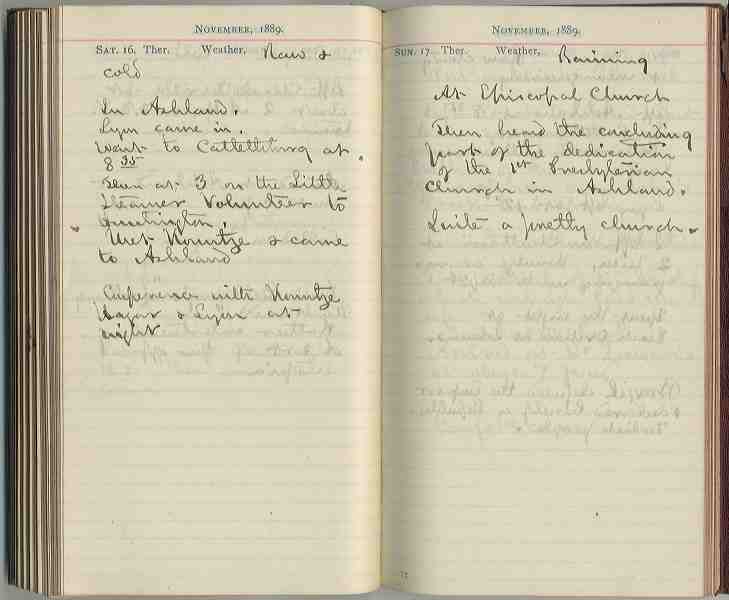 NOVEMBER, 1889.
SAT. 16. Ther. Weather, Raw &
cold
In Ashland.
Lyon came in.
Went to Catlettsburg at
8 35
Then at 3 on the Little
Steamer Volunteer to
Huntington.
Met Kountze & came
to Ashland
Conference with Kountze
& Lyon at
night
NOVEMBER, 1889.
SUN. 17. Ther. Weather, Raining
At Episcopal Church
Then heard the concluding
part of the dedication
of the 1st Presbyterian
Church in Ashland.
Quite a pretty church.